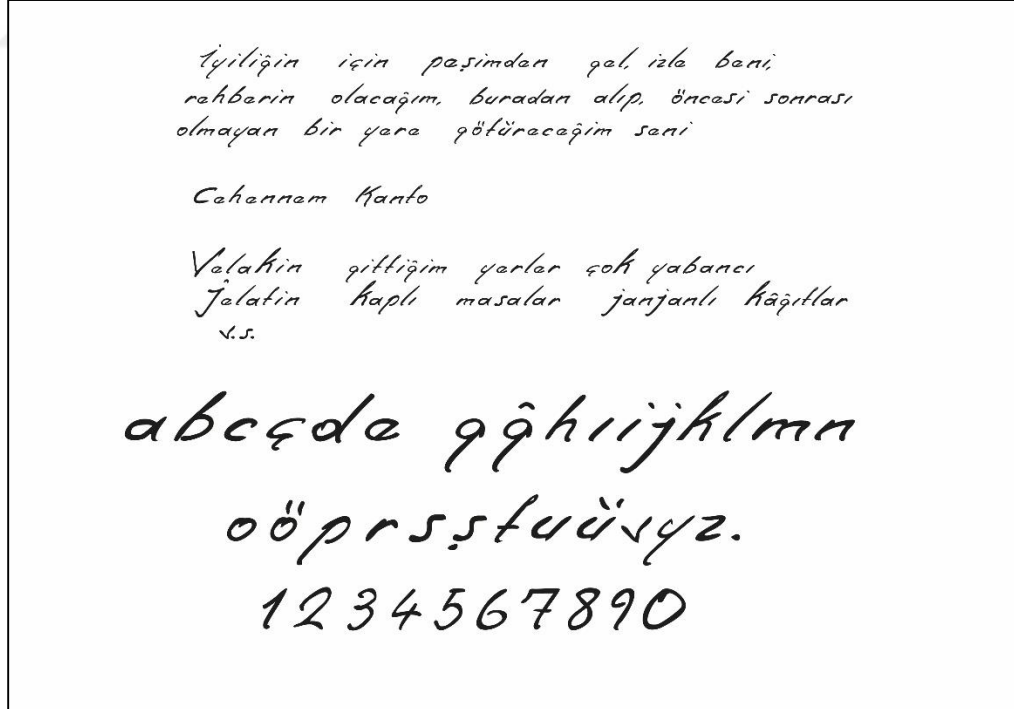 İyiliğin için peşimden gel, izle beni,
rehberin olacağım, buradan alıp, öncesi sonrası
olmayan bir yere götüreceğim seni
Cehennem Kanto
Velakin gittiğim yerler çok yabancı
Jelatin kaplı masalar janjanlı kâğıtlar
v.s.
abcçde gğhıijklmn
oöprsştuüvyz.
1234567890